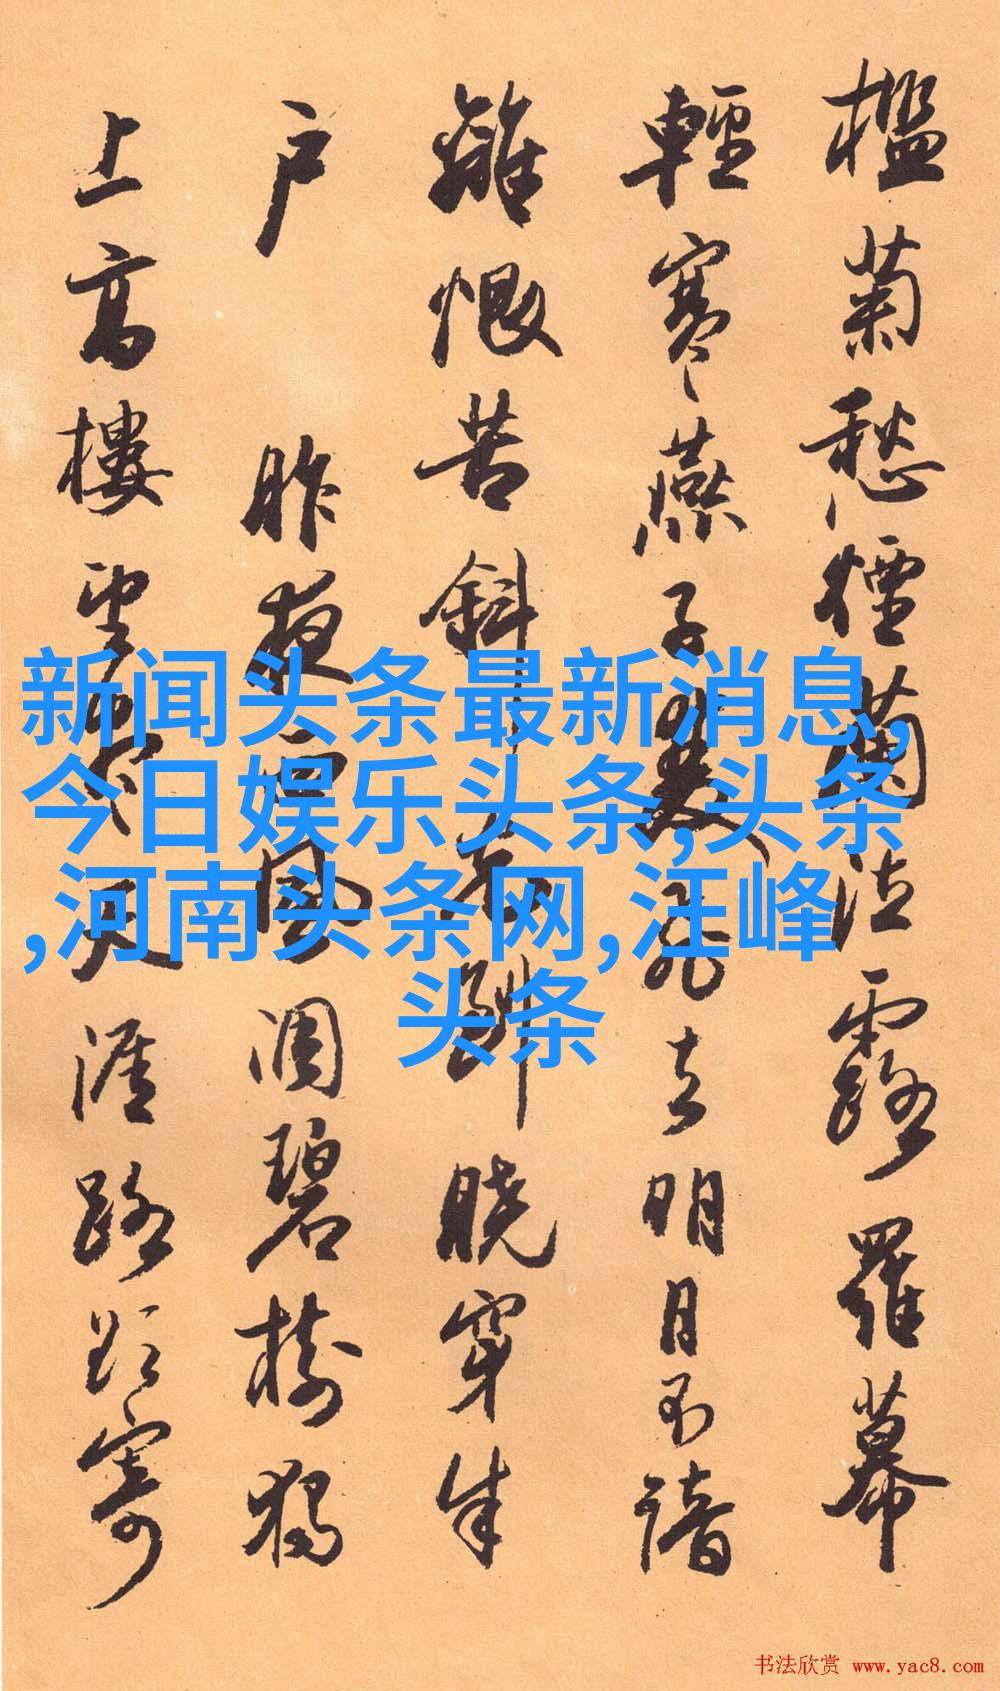 檻菊愁煙蘭泣露羅幕
輕寒燕子雙飛去明月不諳
離恨苦斜光到曉穿朱
户 昨夜西風凋碧樹獨
上高樓望盡天涯路欲寄
新闻头条最新消息,
今日娱乐头条,头条
,河南头条网,汪峰
头条
书法欣赏 www.yac8.com